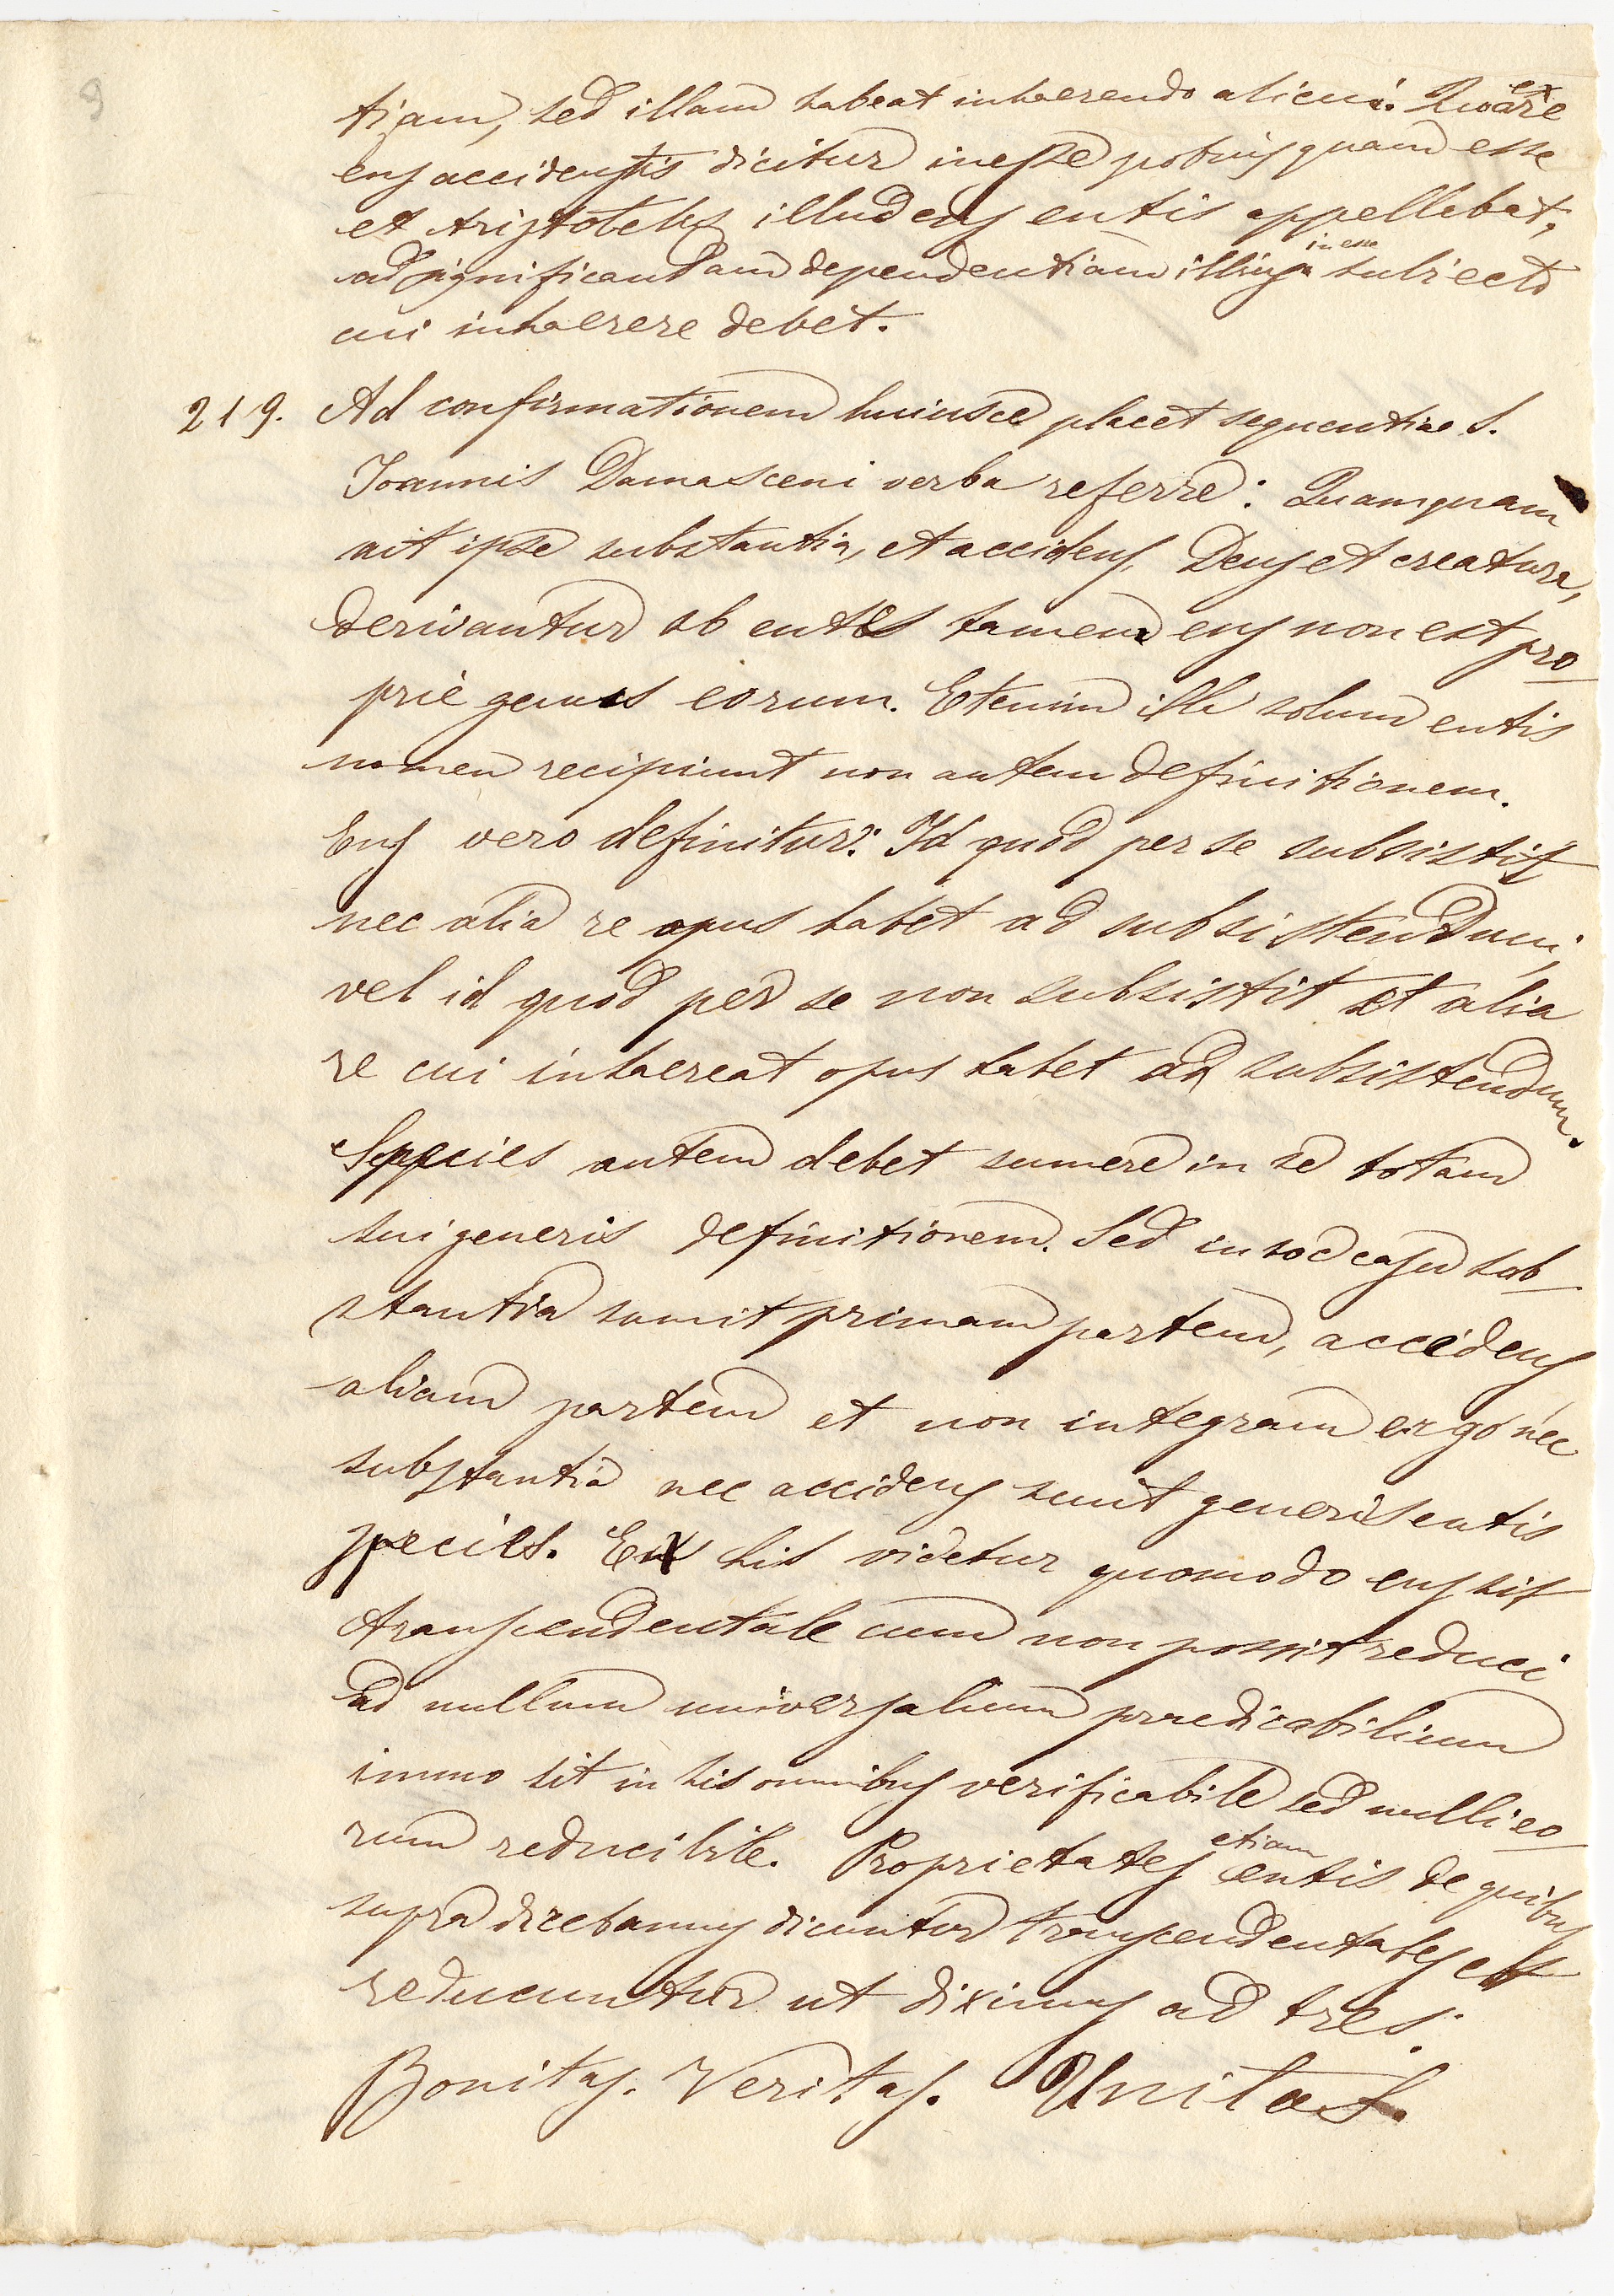 9
tiam, sed illam habeat inhaerendo alicui. Quare ex
ens accidentis dicitur inesse potius quam esse
et Aristoteles illud ens entis appellebat,
in esse
ad significandam dependentiam illius a subiecto
cui inhaerere debet.
219. Ad confirmationem huiusce placet sequentiae S.
Joannis Damasceni verba referre: Quamquam
ait ipse substantia, et accidens, Deus et creatura,
derivantur ab entes tamen ens non est pro
prie genus eorum. Etenim illi solum entis
nomen recipiunt non autem definitionem.
Ens vero definitur: Id quod per se subsistit
nec alia re opus habet ad subsistendum;
vel id quod per se non subsistit et alia
re cui inhaereat opus habet ad subsistendum.
Species autem debet sumere in se totam
sui generis definitionem. Sed in hoc casu sub
stantia sumit primam partem, accidens
aliam partem et non integram ergo nec
substantia nec accidens sunt generis entis
species. Ex his videtur quomodo ens sit
transcendentale cum non possit reduci
ad nullum universalium praedicabilium
immo sit in his omnibus verificabile sed nulli eo
rum reducibile. Proprietates etiam entis de quibus
supra dicebamus dicuntur transcendentales et
reducuntur ut diximus ad tres:
Bonitas. Veritas. Unitas.